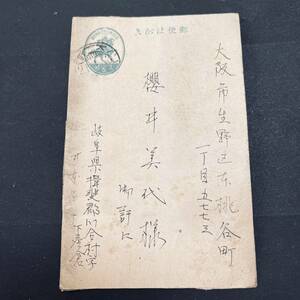 郵便はがき
大阪市生野区東桃谷町
一丁目五七七三
櫻井美代様
御許に
岐阜県揖斐郡川合村字